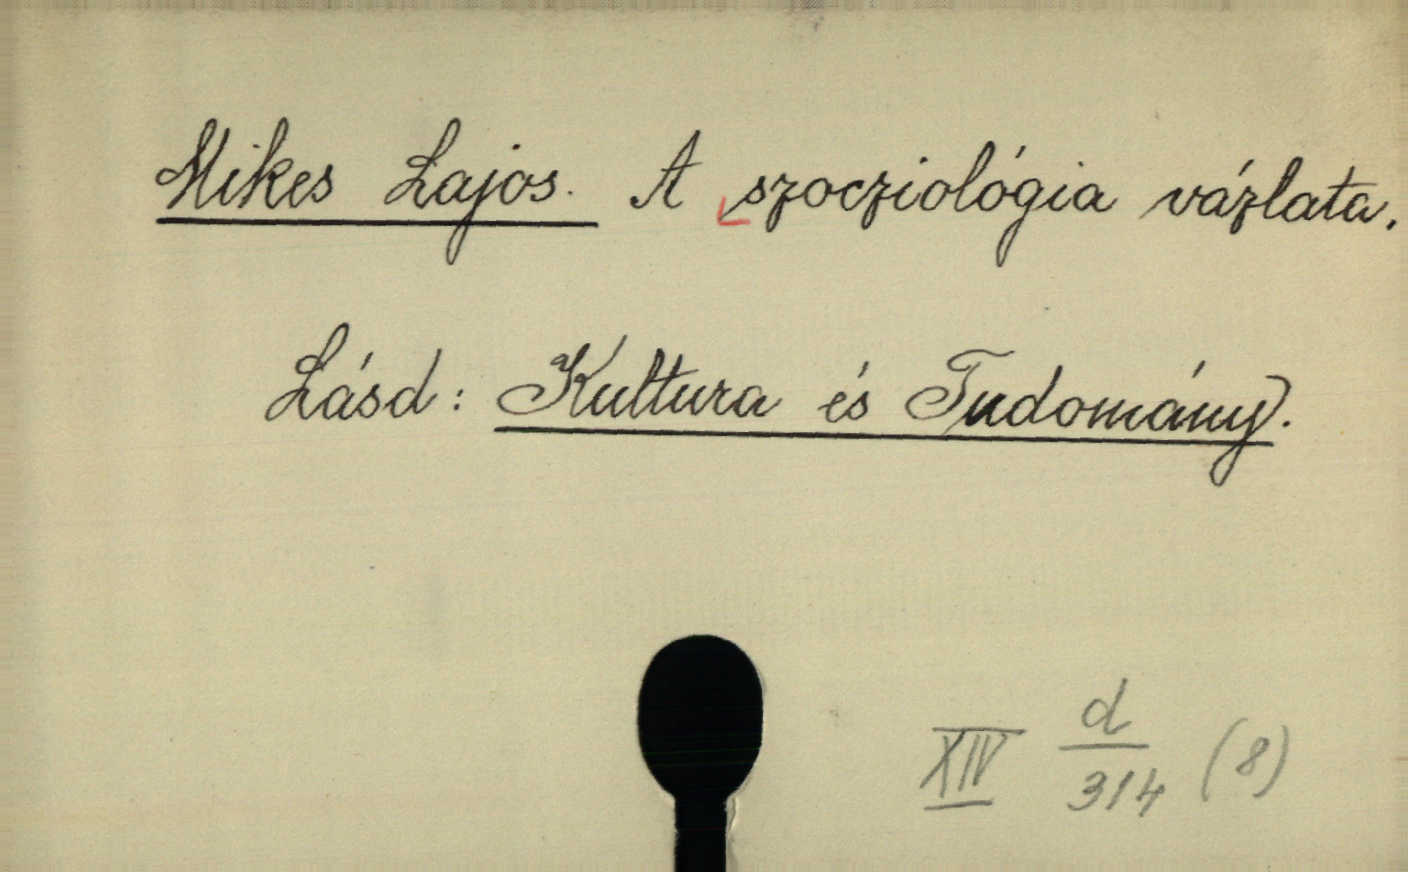 Mikes Lajos. A szocziológia vázlata.
Lásd: Kultura és Tudomány.
XIV d/314 (8)